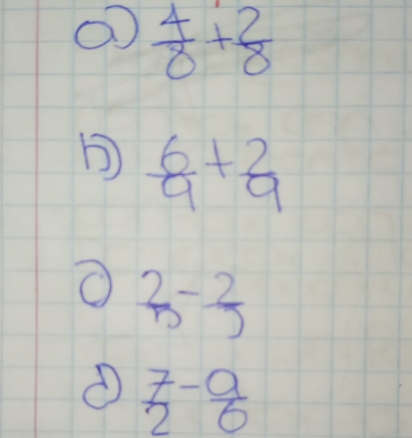 a) 4/8 + 2/8
b) 6/9 + 2/9
c) 2/5 - 2/5
d) 7/2 - 9/6